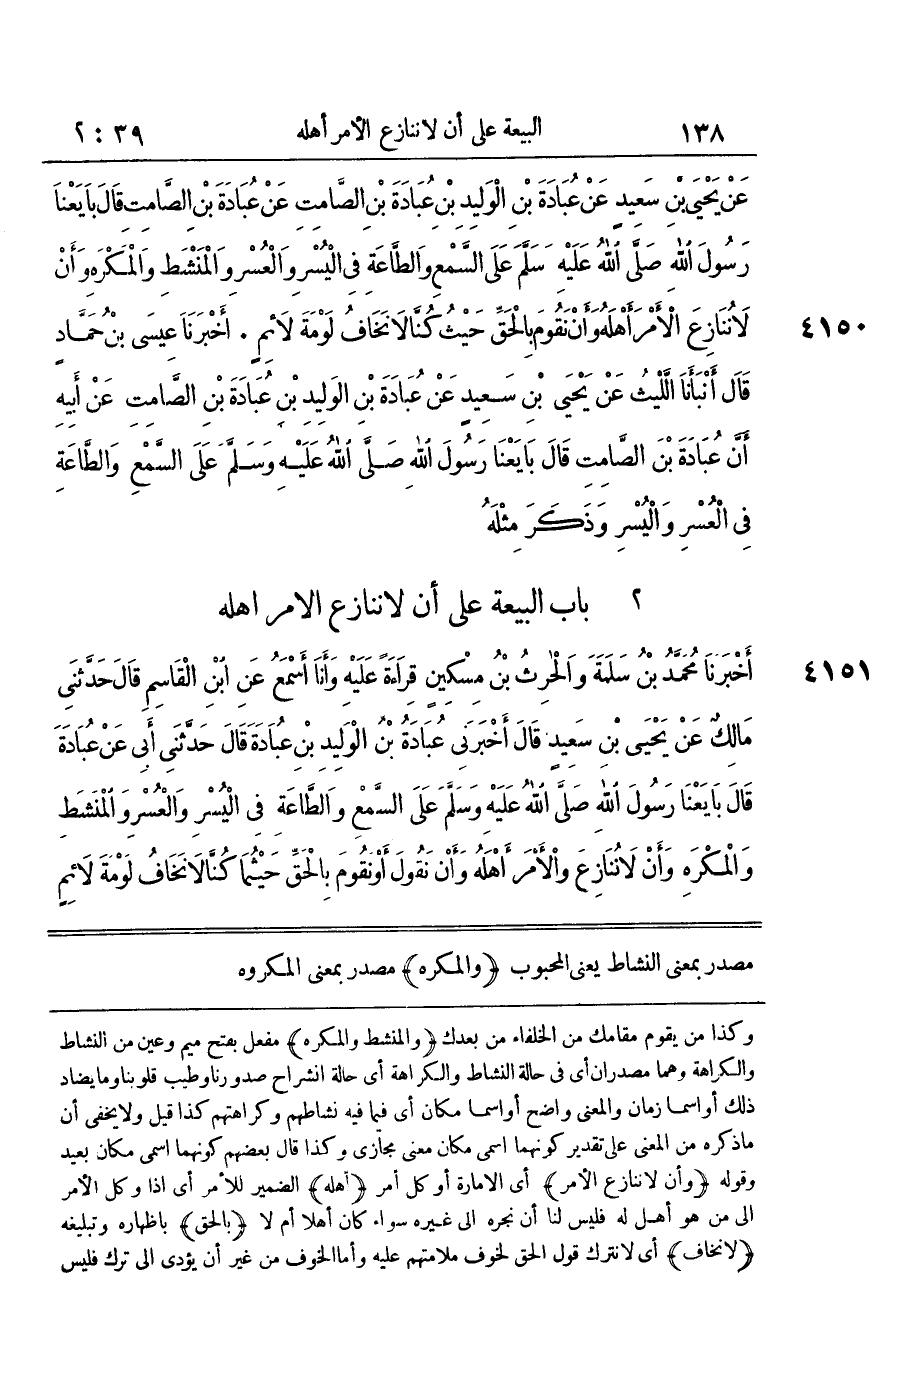 ١٣٨ البيعة على أن لا ننازع الأمر أهله ٣٩ : ٢
عَنْ يَحْيَى بْنِ سَعِيدٍ عَنْ عُبَادَةَ بْنِ الْوَلِيدِ بْنِ عُبَادَةَ بْنِ الصَّامِتِ عَنْ عُبَادَةَ بْنِ الصَّامِتِ قَالَ بَايَعْنَا
رَسُولَ اللهِ صَلَّى اللهُ عَلَيْهِ وَسَلَّمَ عَلَى السَّمْعِ وَالطَّاعَةِ فِى الْيُسْرِ وَالْعُسْرِ وَالْمَنْشَطِ وَالْمَكْرَهِ وَأَنْ
لَا نُنَازِعَ الْأَمْرَ أَهْلَهُ وَأَنْ نَقُومَ بِالْحَقِّ حَيْثُ كُنَّا لَا نَخَافُ لَوْمَةَ لَائِمٍ . أَخْبَرَنَا عِيسَى بْنُ حَمَّادٍ ٤١٥٠
قَالَ أَنْبَأَنَا اللَّيْثُ عَنْ يَحْيَى بْنِ سَعِيدٍ عَنْ عُبَادَةَ بْنِ الْوَلِيدِ بْنِ عُبَادَةَ بْنِ الصَّامِتِ عَنْ أَبِيهِ
أَنَّ عُبَادَةَ بْنَ الصَّامِتِ قَالَ بَايَعْنَا رَسُولَ اللهِ صَلَّى اللهُ عَلَيْهِ وَسَلَّمَ عَلَى السَّمْعِ وَالطَّاعَةِ
فِى الْعُسْرِ وَالْيُسْرِ وَذَكَرَ مِثْلَهُ
٢ باب البيعة على أن لا ننازع الامر اهله
أَخْبَرَنَا مُحَمَّدُ بْنُ سَلَمَةَ وَالْحٰرِثُ بْنُ مِسْكِينٍ قِرَاءَةً عَلَيْهِ وَأَنَا أَسْمَعُ عَنِ ابْنِ الْقَاسِمِ قَالَ حَدَّثَنِى ٤١٥١
مَالِكٌ عَنْ يَحْيَى بْنِ سَعِيدٍ قَالَ أَخْبَرَنِى عُبَادَةُ بْنُ الْوَلِيدِ بْنِ عُبَادَةَ قَالَ حَدَّثَنِى أَبِى عَنْ عُبَادَةَ
قَالَ بَايَعْنَا رَسُولَ اللهِ صَلَّى اللهُ عَلَيْهِ وَسَلَّمَ عَلَى السَّمْعِ وَالطَّاعَةِ فِى الْيُسْرِ وَالْعُسْرِ وَالْمَنْشَطِ
وَالْمَكْرَهِ وَأَنْ لَا نُنَازِعَ وَالْأَمْرَ أَهْلَهُ وَأَنْ نَقُولَ أَوْ نَقُومَ بِالْحَقِّ حَيْثُمَا كُنَّا لَا نَخَافُ لَوْمَةَ لَائِمٍ
مصدر بمعنى النشاط يعنى المحبوب ﴿والمكره﴾ مصدر بمعنى المكروه
وكذا من يقوم مقامك من الخلفاء من بعدك ﴿والمنشط والمكره﴾ مفعل بفتح ميم وعين من النشاط
والكراهة وهما مصدران أى فى حالة النشاط والكراهة أى حالة انشراح صدورنا وطيب قلوبنا وما يضاد
ذلك أو اسما زمان والمعنى واضح أو اسما مكان أى فيما فيه نشاطهم وكراهتهم كذا قيل ولا يخفى أن
ماذكره من المعنى على تقدير كونهما اسمى مكان معنى مجازى وكذا قال بعضهم كونهما اسمى مكان بعيد
وقوله ﴿وأن لا ننازع الأمر﴾ أى الامارة أو كل أمر ﴿أهله﴾ الضمير للأمر أى اذا وكل الأمر
الى من هو أهل له فليس لنا أن نجره الى غيره سواء كان أهلا أم لا ﴿بالحق﴾ باظهاره وتبليغه
﴿لا نخاف﴾ أى لا نترك قول الحق لخوف ملامتهم عليه وأما الخوف من غير أن يؤدى الى ترك فليس